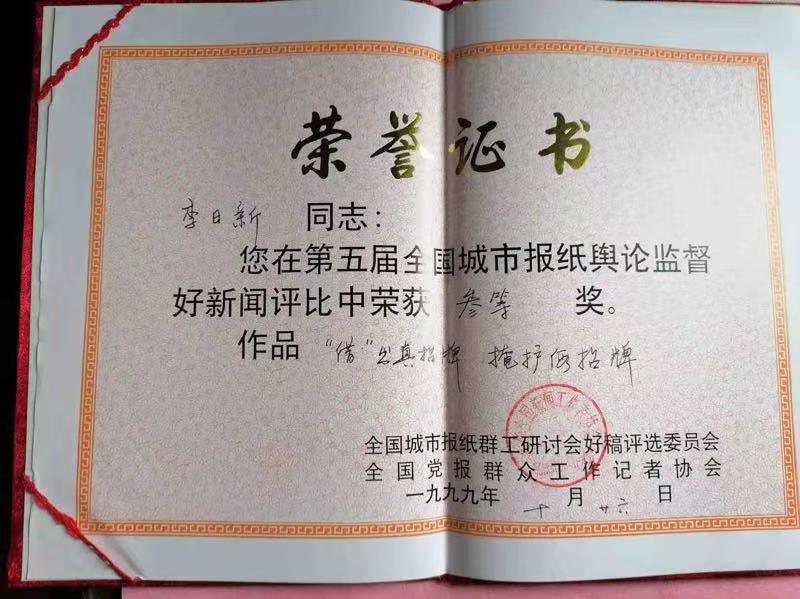 荣誉证书
李日新 同志：
您在第五届全国城市报纸舆论监督
好新闻评比中荣获 叁等 奖。
作品 “借”出真招牌 掩护假招牌
全国城市报纸群工研讨会好稿评选委员会
全国党报群众工作记者协会
一九九九年 十 月 廿六 日